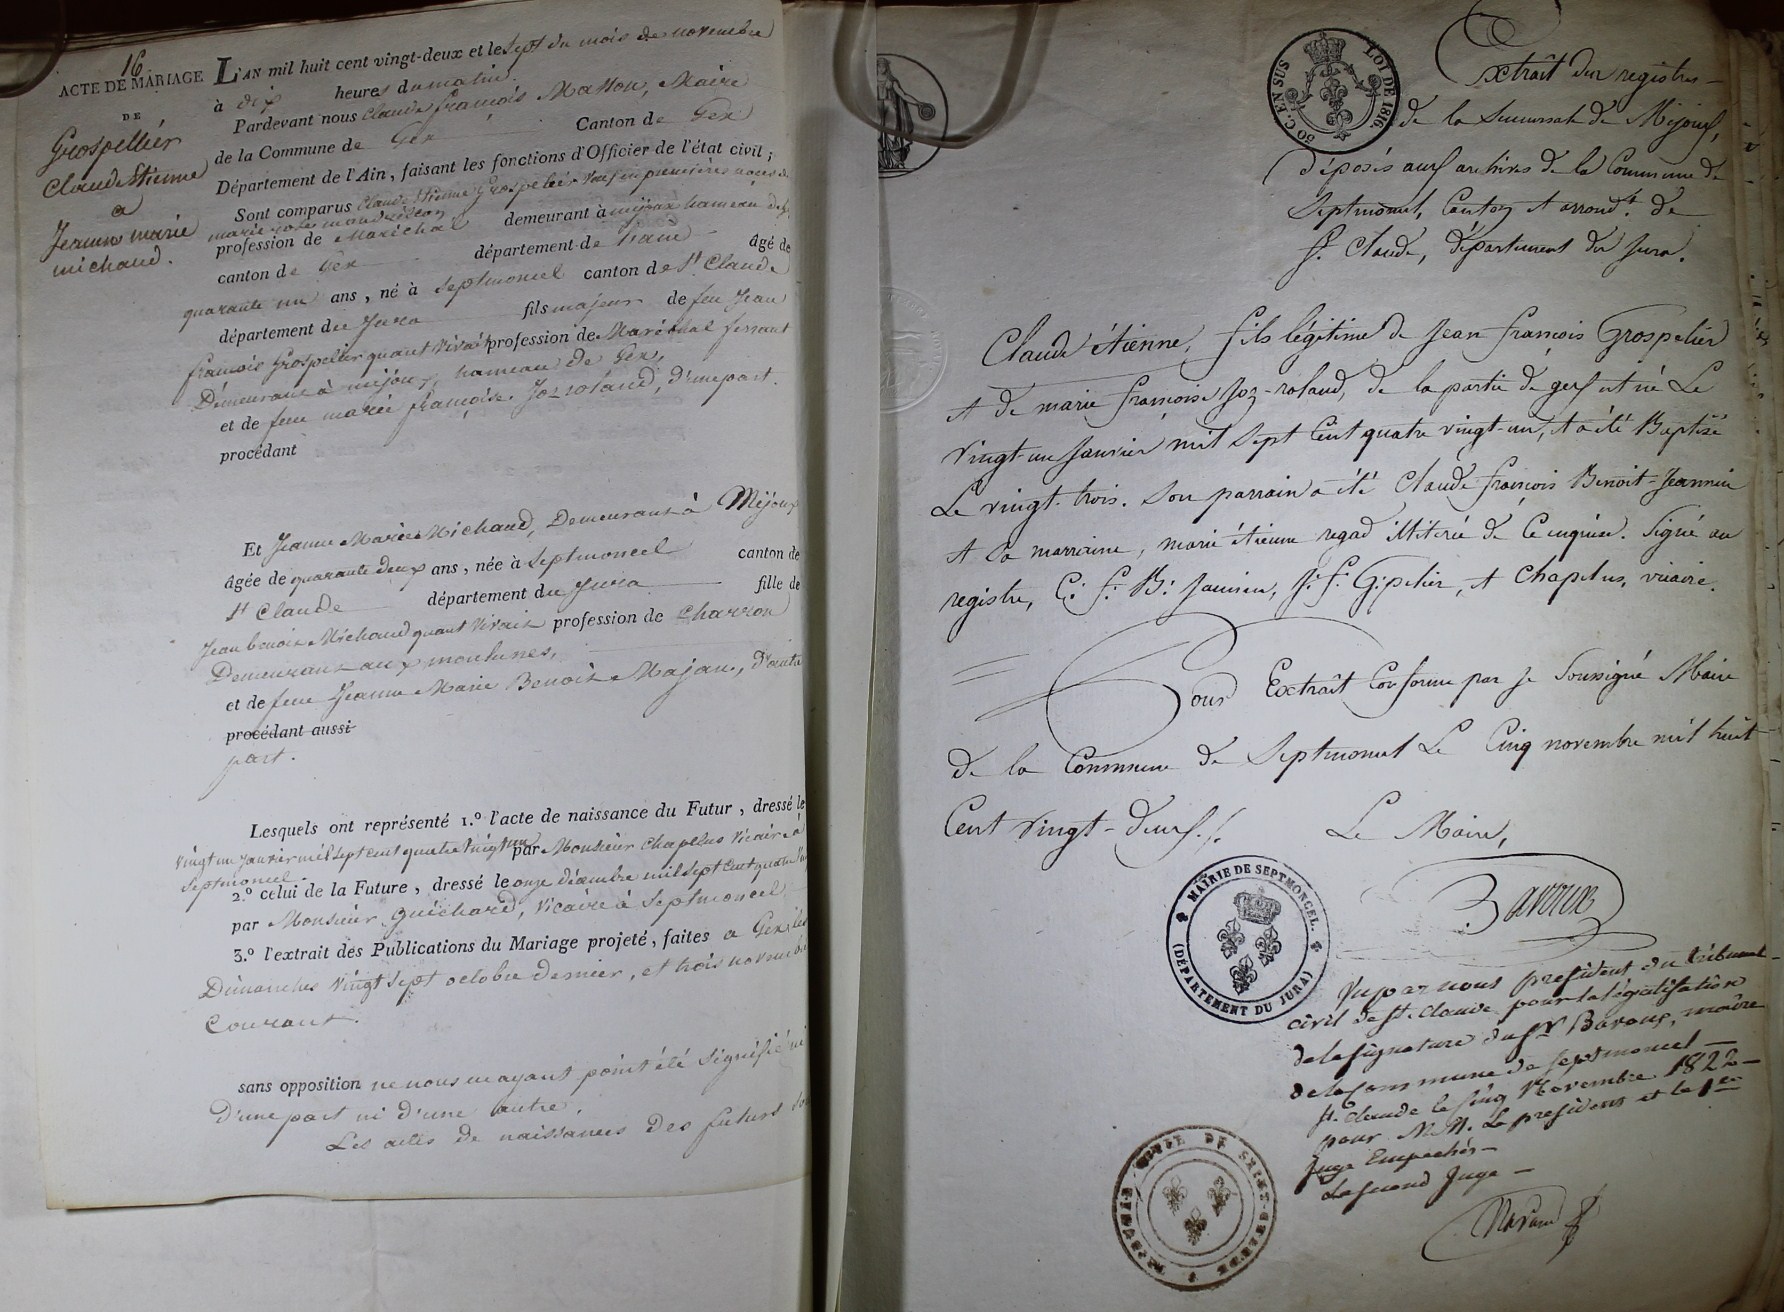 16
ACTE DE MARIAGE
DE
Grospellier
Claude Etienne
a
Jeanne marie
michaud.
L'AN mil huit cent vingt-deux et le sept du mois de novembre
à dix heures du matin.
Pardevant nous Claude françois Matton, Maire
de la Commune de Gex Canton de Gex
Département de l'Ain, faisant les fonctions d'Officier de l'état civil;
Sont comparus Claude Etienne Grospelier Veuf en premières noces de
marie rose
profession de Maréchal demeurant à mijoux hameau de
canton de Gex département de l'ain âgé de
quarante un ans, né à Septmoncel canton de St Claude
département du Jura fils majeur de feu Jean
françois Grospelier quant vivait profession de Maréchal ferrant
Demeurant à mijoux, hameau de Gex,
et de feue marie françoise Joz-roland, d'une part.
procédant
Et Jeanne Marie Michaud, Demeurant à Mijoux
âgée de quarante deux ans, née à Septmoncel canton de
St Claude département du Jura fille de
Jean benoit Michaud quant Vivait profession de Charron
Demeurant aux moulunes,
et de feue Jeanne Marie Benoit Majan, d'autre
procédant aussi
part.
Lesquels ont représenté 1.º l'acte de naissance du Futur, dressé le
vingt un janvier mil sept cent quatre vingt un par Monsieur Chapelus Vicaire à
Septmoncel.
2.º celui de la Future, dressé le onze décembre mil sept cent quatre
par Monsieur Guichard, Vicaire à Septmoncel
3.º l'extrait des Publications du Mariage projeté, faites a Gex, les
Dimanches vingt sept octobre dernier, et trois novembre
Courant.
sans opposition ne nous en ayant point été signifié ni
D'une part ni d'une autre.
Les actes de naissances des futurs
30 C. EN SUS
LOI DE 1816.
Extrait des registres
de la Succursale de Mijoux,
déposés aux archives de la Commune de
Septmoncel, Canton et arrondt. de
St. Claude, département du Jura.
Claude étienne, fils légitime de Jean françois Grospelier
et de marie françoise Joz-roland, de la partie de gex est né Le
vingt-un Janvier mil sept Cent quatre vingt-un, et a été Baptisé
Le vingt-trois. Son parrain a été Claude françois Benoit-Jeannin
et Sa marraine, marie étienne regad illitérée de ce enquise. Signé au
registre, C: f: B: Jannin, J: f: G:pelier, et Chapelus, vicaire.
Pour Extrait Conforme par je Soussigné Maire
de la Commune de Septmoncel Le Cinq novembre mil huit
Cent vingt-deux./.
Le Maire,
Bavoux
MAIRIE DE SEPTMONCEL.
(DÉPARTEMENT DU JURA)
Vu par nous président du tribunal
civil de St. Claude pour la légalisation
de la signature du Sr Bavoux, maire
de la Commune de Septmoncel —
St. Claude le Cinq Novembre 1822 —
pour M.M. Le président et le 1er
Juge Empechés —
Le second Juge —